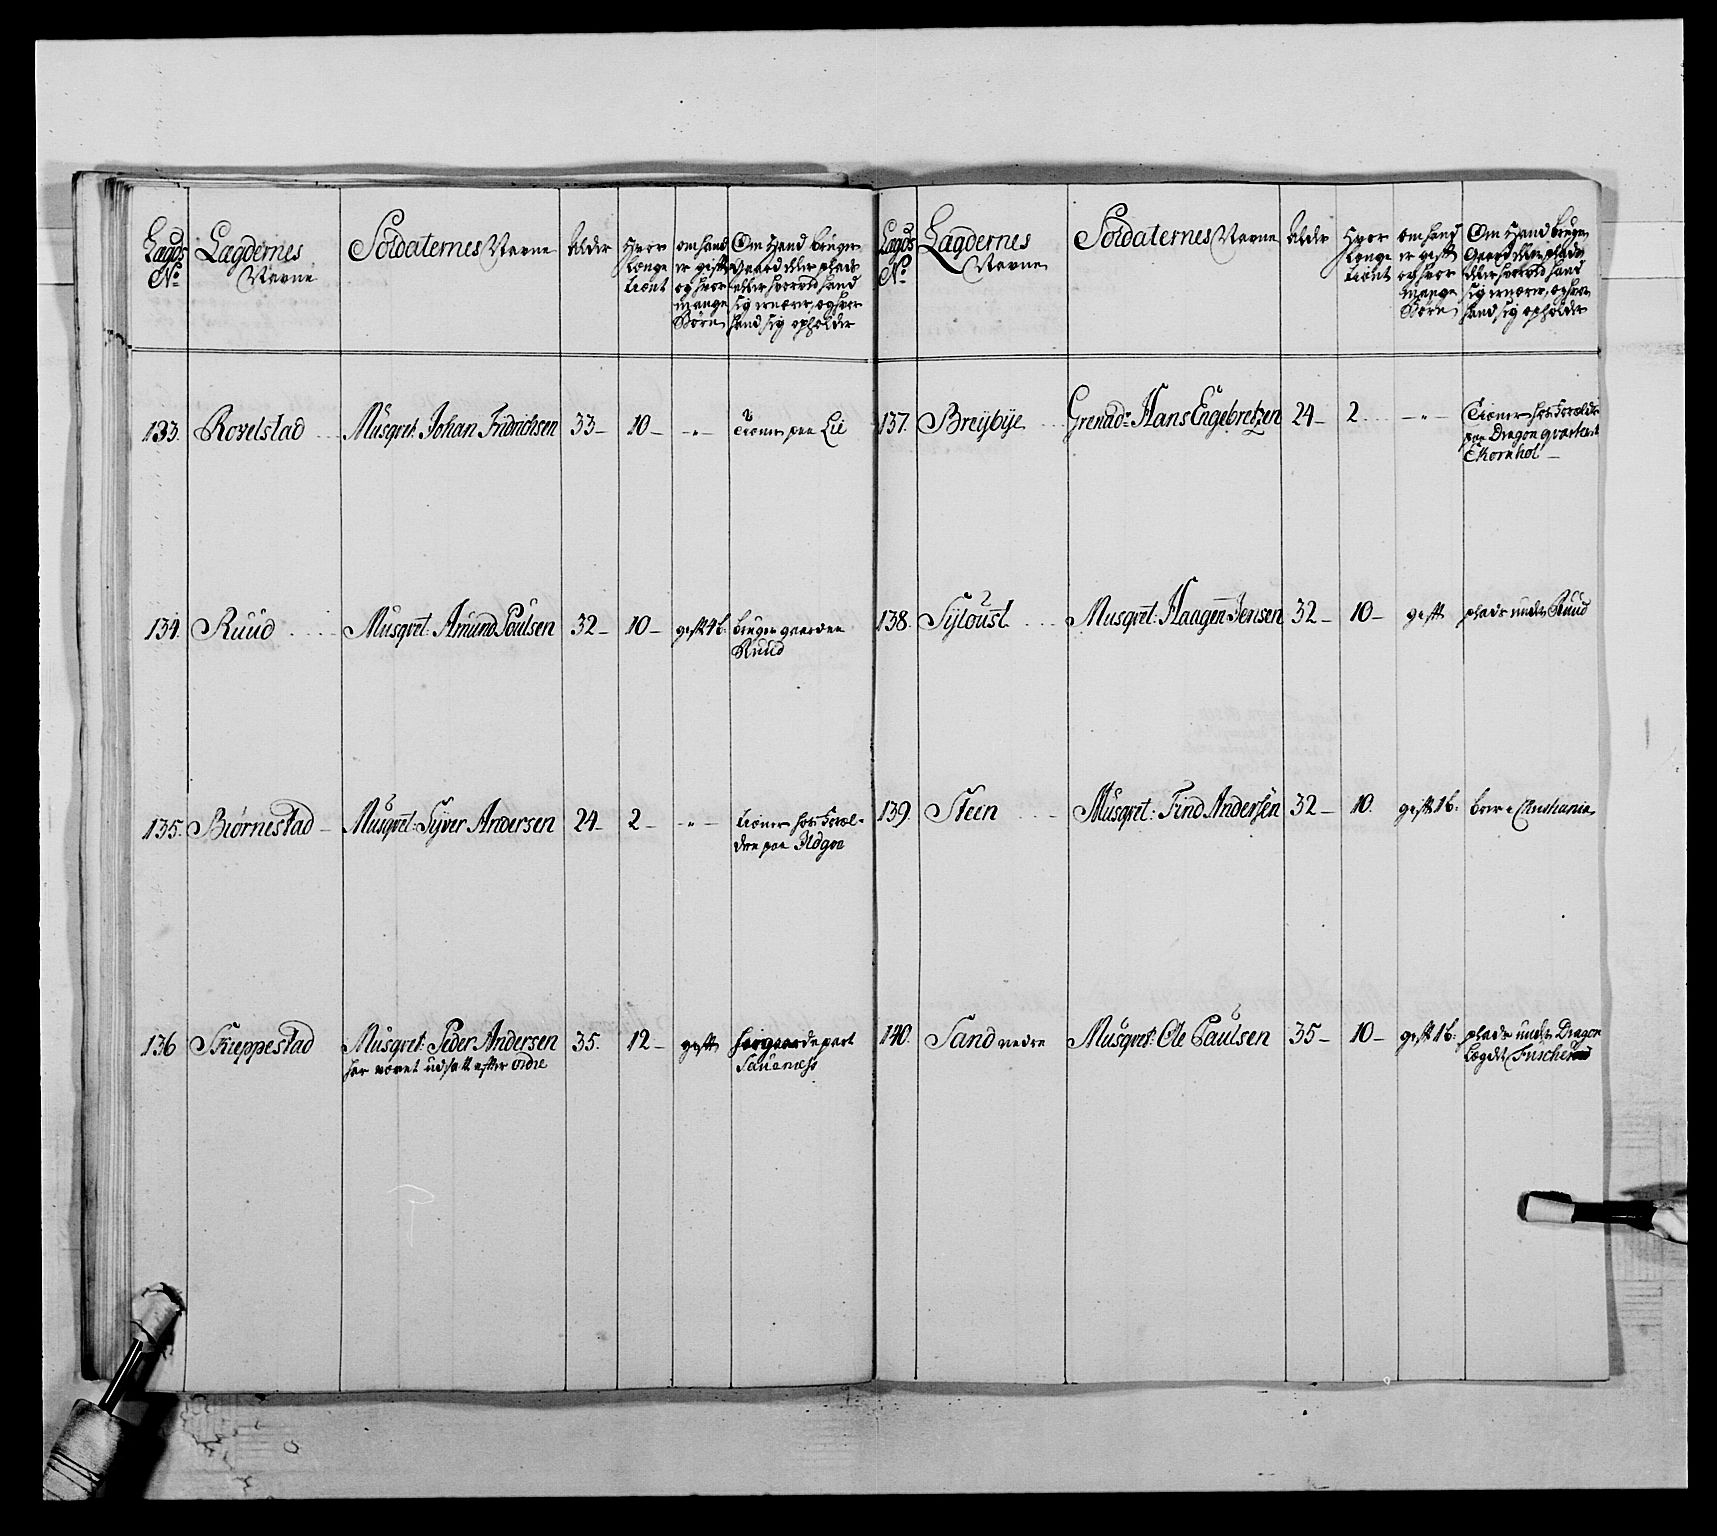 Lagds No
Lagdernes Navne
Soldaternes Navne
Alder
Hvor Længe tient
om hand er gift og hvor mange Børn
Om Hand bruger Gaard eller plads eller hvorved hand sig ernærer, og hvor hand sig opholder
133. Rovelstad Musqvet: Johan Fridrichsen 33 10 " tiener paa Lie
134. Ruud Musqvet: Amund Poulsen 32 10 gift 4 b: bruger gaarden
Ruud
135. Biørnestad Musqvet: Syver Andersen 24 2 " tiener hos Foræl-
dre paa
136 Skieppestad Musqvet: Peder Andersen 35. 12 gift
har været udsatt efter ordre
Lagds No
Lagdernes Navne
Soldaternes Navne
Alder
Hvor Længe tient
om hand er gift og hvor mange Børn
Om Hand bruger Gaard eller plads eller hvorved hand sig ernærer, og hvor hand sig opholder
137. Breÿbÿe Grenad: Hans Engebretzen 24 2 " Tiener hos Forældre
paa Dragon qvarteret
138. Musqvet: Haagen Jensen 32 10 gift plads under Ruud
139. Steen Musqvet: Find Andersen 32 10. gift 1 b: boer i Christiania
140. Sand nedre Musqvet: Ole Paulsen 35 10 gift 1 b: plads under Dragon
Lægdet